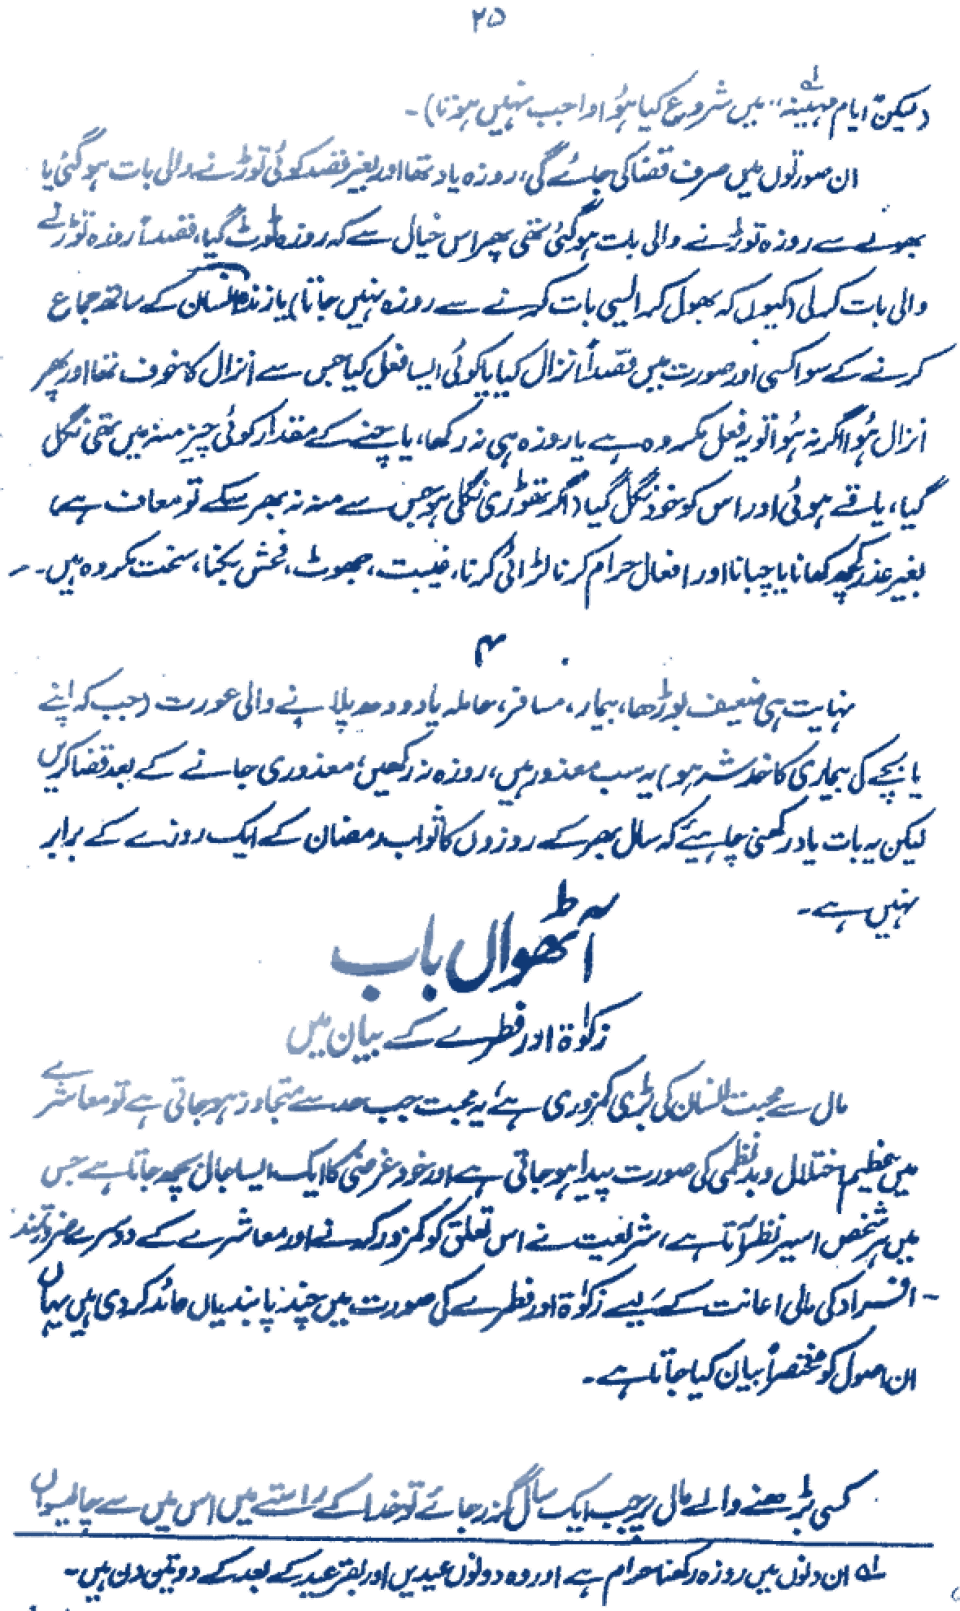 ۲۵
(لیکن ایام مہینہ ؎ میں شروع کیا ہوا واجب نہیں ہوتا) ۔
ان صورتوں میں صرف قضا کی جائے گی، روزہ یاد تھا اور بغیر قصد کوئی توڑنے والی بات ہو گئی یا
بھولے سے روزہ توڑنے والی بات ہو گئی تھی پھر اس خیال سے کہ روزہ ٹوٹ گیا، قصداً روزہ توڑنے
والی بات کر لی (کیوں کہ بھول کر ایسی بات کرنے سے روزہ نہیں جاتا) یا زندہ انسان کے ساتھ جماع
کرنے کے سوا کسی اور صورت میں قصداً انزال کیا یا کوئی ایسا فعل کیا جس سے انزال کا خوف تھا اور پھر
انزال ہوا اگر نہ ہوا تو یہ فعل مکروہ ہے یا روزہ ہی نہ رکھا، یا چنے کے مقدار کوئی چیز منہ میں تھی نگل
گیا، یا قے ہوئی اور اس کو خود نگل گیا (اگر تھوڑی نکلی ہو جس سے منہ نہ بھر سکے تو معاف ہے)
بغیر عذر کچھ کھانا یا چبانا اور افعال حرام کرنا لڑائی کرنا، غیبت، جھوٹ، فحش بکنا، سخت مکروہ ہیں۔
۴
نہایت ہی ضعیف بوڑھا، بیمار، مسافر، حاملہ یا دودھ پلانے والی عورت (جب کہ اپنے
یا بچے کی بیماری کا خدشہ ہو) یہ سب معذور ہیں، روزہ نہ رکھیں، معذوری جانے کے بعد قضا کریں
لیکن یہ بات یاد رکھنی چاہیئے کہ سال بھر کے روزوں کا ثواب رمضان کے ایک روزے کے برابر
نہیں ہے۔
آٹھواں باب
زکوٰۃ اور فطرے کے بیان میں
مال سے محبت انسان کی بڑی کمزوری ہے، یہ محبت جب حد سے متجاوز ہو جاتی ہے تو معاشرے
میں عظیم اختلال و بدنظمی کی صورت پیدا ہو جاتی ہے اور خود غرضی کا ایک ایسا جال بچھ جاتا ہے جس
میں ہر شخص اسیر نظر آتا ہے، شریعت نے اس تعلق کو کمزور کرنے اور معاشرے کے دوسرے ضرورتمند
افراد کی مالی اعانت کے لیے زکوٰۃ اور فطرے کی صورت میں چند پابندیاں عائد کر دی ہیں یہاں
ان اصول کو مختصراً بیان کیا جاتا ہے۔
کسی بڑھنے والے مال پر جب ایک سال گزر جائے تو خدا کے راستے میں اس میں سے چالیسواں
؎ ان دنوں میں روزہ رکھنا حرام ہے اور وہ دونوں عیدیں اور بقرعید کے بعد کے دو تین دن ہیں۔